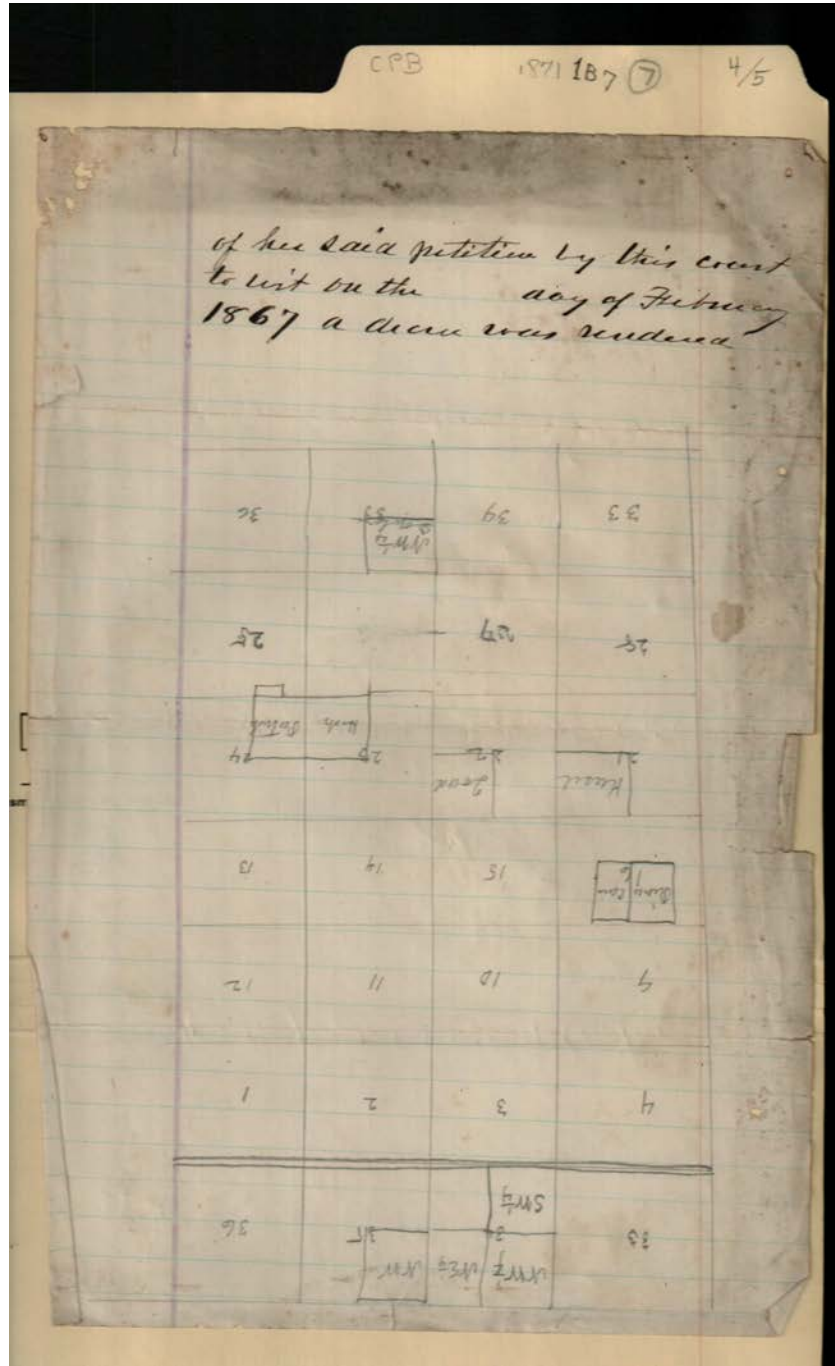 CPB 1871 1B7 7 4/5
of her said petition by this court
to wit on the day of February
1867 a decree was rendered
36 35 34 33
NW 1/4
25 27 28
24 23 22 21
13 14 15 16
12 11 10 9
1 2 3 4
36 35 33
SW 1/4
NW NE 1/4 NW 1/4